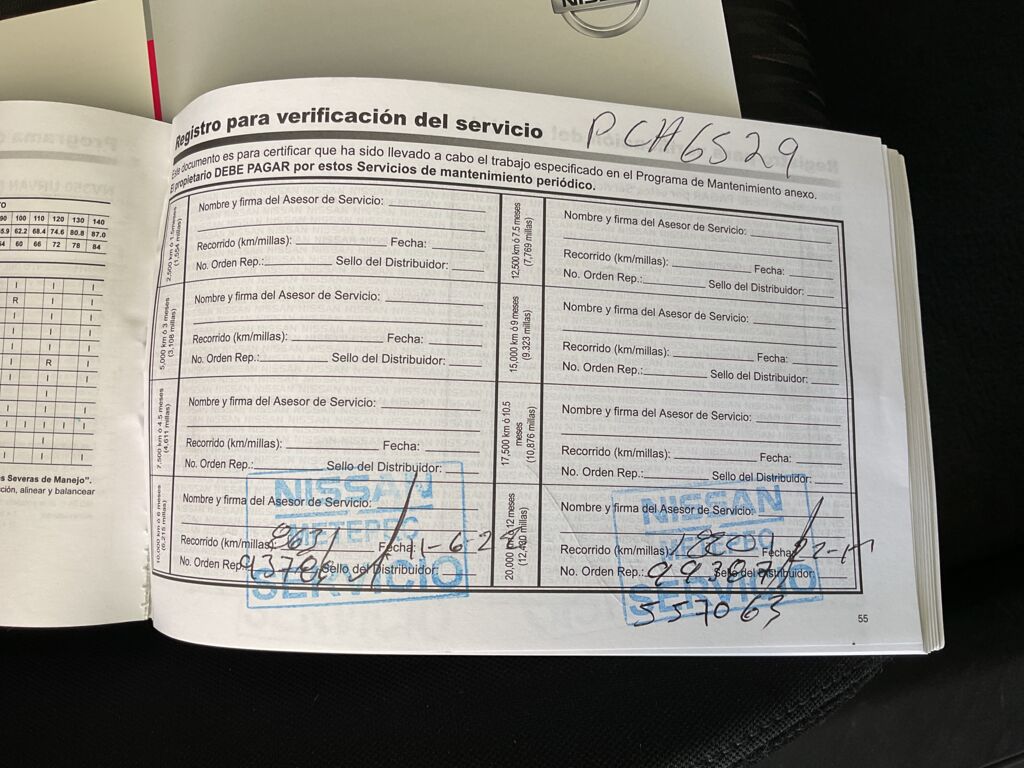 NISSAN
Programa d
TO
90 100 110 120 130 140
55.9 62.2 68.4 74.6 80.8 87.0
54 60 66 72 78 84
I I I
R I I
I I I
I I I
I I I
R I
s Severas de Manejo".
ción, alinear y balancear
Registro para verificación del servicio
PCH6529
Este documento es para certificar que ha sido llevado a cabo el trabajo especificado en el Programa de Mantenimiento anexo.
El propietario DEBE PAGAR por estos Servicios de mantenimiento periódico.
2,500 km ó 1.5 meses
(1,554 millas)
Nombre y firma del Asesor de Servicio:
Recorrido (km/millas): Fecha:
No. Orden Rep.: Sello del Distribuidor:
5,000 km ó 3 meses
(3,108 millas)
Nombre y firma del Asesor de Servicio:
Recorrido (km/millas): Fecha:
No. Orden Rep.: Sello del Distribuidor:
7,500 km ó 4.5 meses
(4,611 millas)
Nombre y firma del Asesor de Servicio:
Recorrido (km/millas): Fecha:
No. Orden Rep.: Sello del Distribuidor:
10,000 km ó 6 meses
(6,215 millas)
Nombre y firma del Asesor de Servicio:
Recorrido (km/millas): Fecha: 11-6-2
No. Orden Rep.: 93786 Sello del Distribuidor:
NISSAN
METEPEC
SERVICIO
12,500 km ó 7.5 meses
(7,769 millas)
Nombre y firma del Asesor de Servicio:
Recorrido (km/millas): Fecha:
No. Orden Rep.: Sello del Distribuidor:
15,000 km ó 9 meses
(9.323 millas)
Nombre y firma del Asesor de Servicio:
Recorrido (km/millas): Fecha:
No. Orden Rep.: Sello del Distribuidor:
17,500 km ó 10.5
meses
(10,876 millas)
Nombre y firma del Asesor de Servicio:
Recorrido (km/millas): Fecha:
No. Orden Rep.: Sello del Distribuidor:
20,000 km ó 12 meses
(12,430 millas)
Nombre y firma del Asesor de Servicio:
Recorrido (km/millas): Fecha:
No. Orden Rep.: 99387 Sello del Distribuidor:
NISSAN
METEPEC
SERVICIO
557063
55